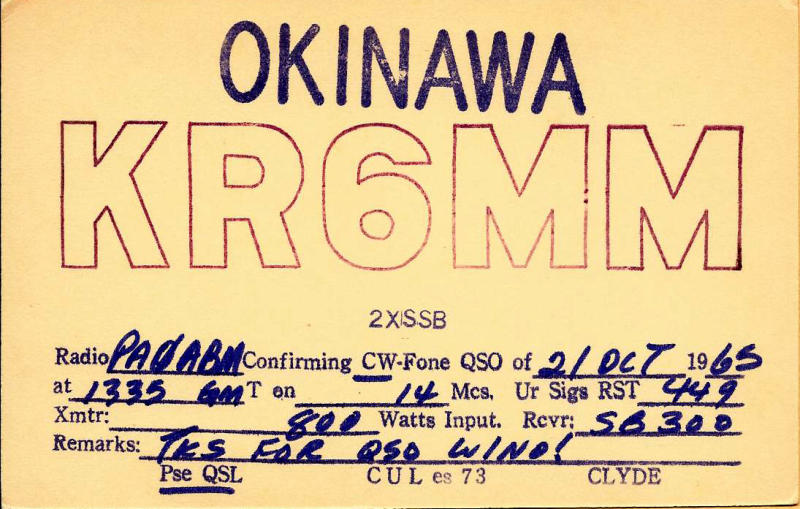 OKINAWA
KR6MM
2XSSB
Radio PAØABM Confirming CW-Fone QSO of 21 OCT 1965
at 1335 GMT on 14 Mcs. Ur Sigs RST 449
Xmtr: 800 Watts Input. Rcvr: SB300
Remarks: TKS FOR QSO WINO!
Pse QSL CUL es 73 CLYDE